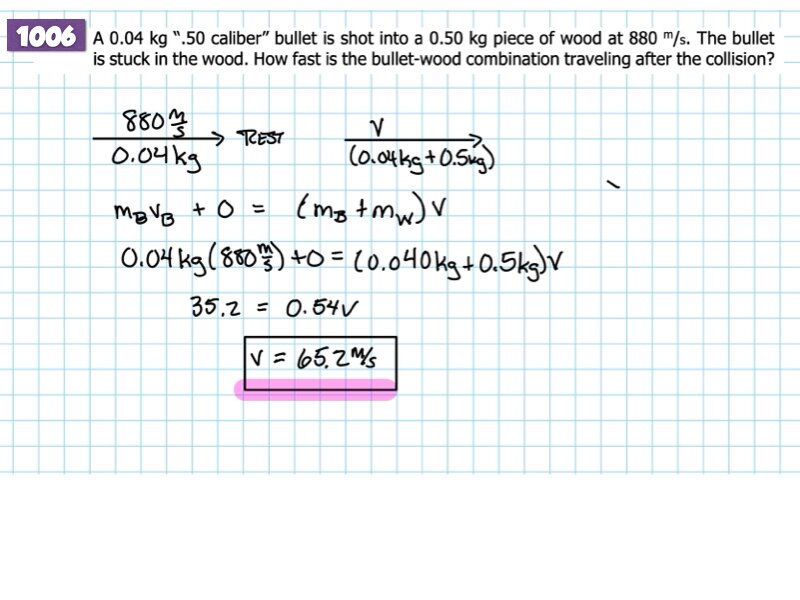 1006 A 0.04 kg “.50 caliber” bullet is shot into a 0.50 kg piece of wood at 880 m/s. The bullet
is stuck in the wood. How fast is the bullet-wood combination traveling after the collision?
880 m/s REST V
0.04kg (0.04kg+0.5kg)
mBVB + 0 = (mB + mW)V
0.04kg(880 m/s)+0=(0.040kg+0.5kg)V
35.2 = 0.54V
V = 65.2 m/s